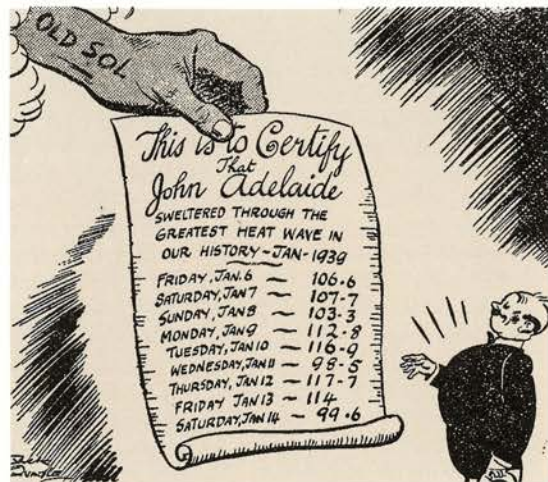 OLD SOL
This is to Certify
That
John Adelaide
SWELTERED THROUGH THE
GREATEST HEAT WAVE IN
OUR HISTORY - JAN - 1939
FRIDAY, JAN. 6 ~ 106.6
SATURDAY, JAN 7 ~ 107.7
SUNDAY, JAN 8 ~ 103.3
MONDAY, JAN 9 ~ 112.8
TUESDAY, JAN 10 ~ 116.9
WEDNESDAY, JAN 11 ~ 98.5
THURSDAY, JAN 12 ~ 117.7
FRIDAY JAN 13 ~ 114
SATURDAY, JAN 14 ~ 99.6